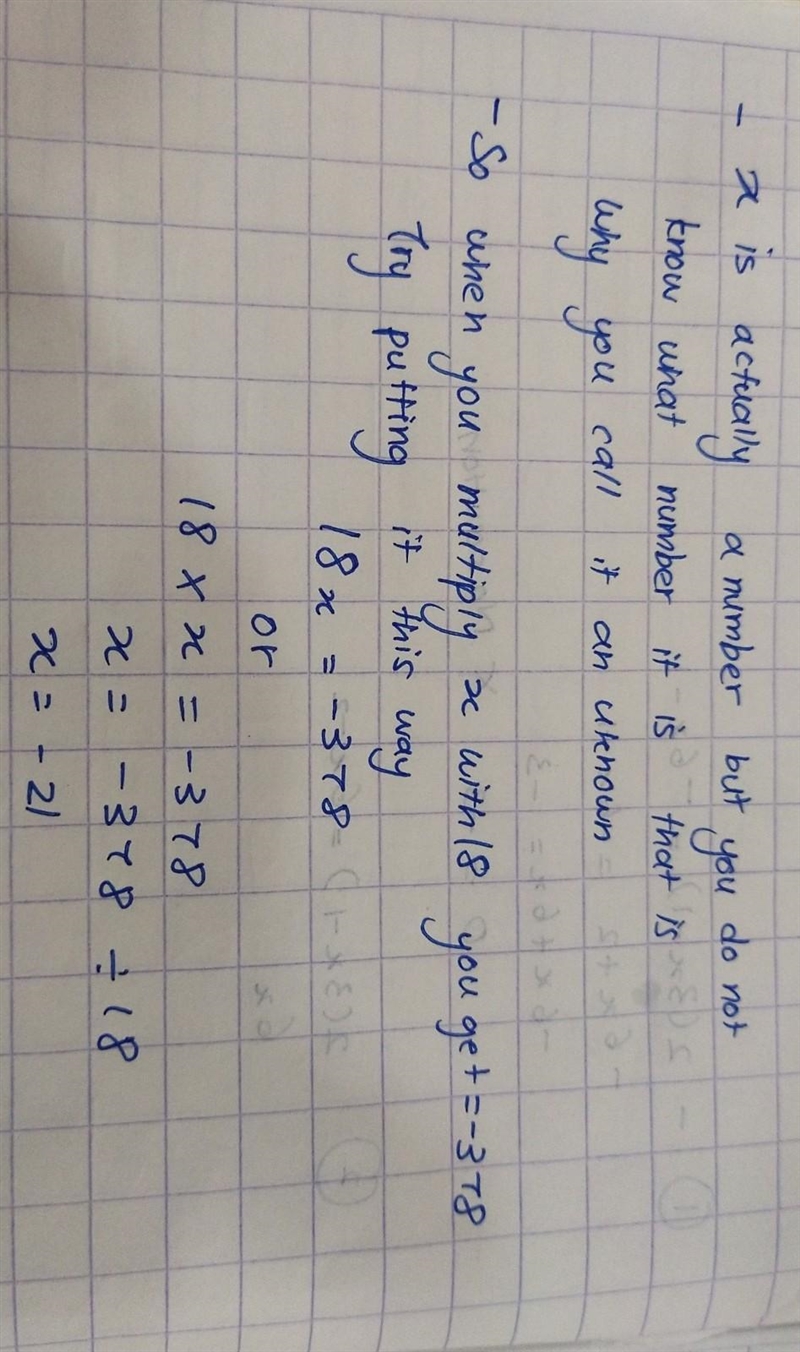 - x is actually a number but you do not
know what number it is that is
why you call it an uknown
- So when you multiply x with 18 you get = -378
Try putting it this way
18x = -378
or
18 × x = -378
x = -378 ÷ 18
x = -21